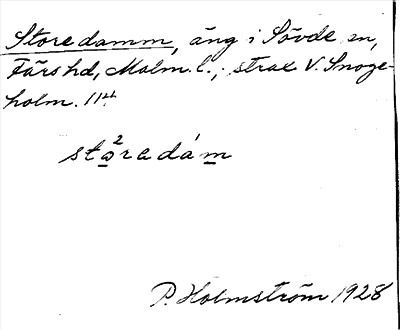 Storedamm, äng i Sövde sn,
Färs hd, Malm. l.; strax V. Snoge-
holm. 114
staredám
P. Holmström 1928